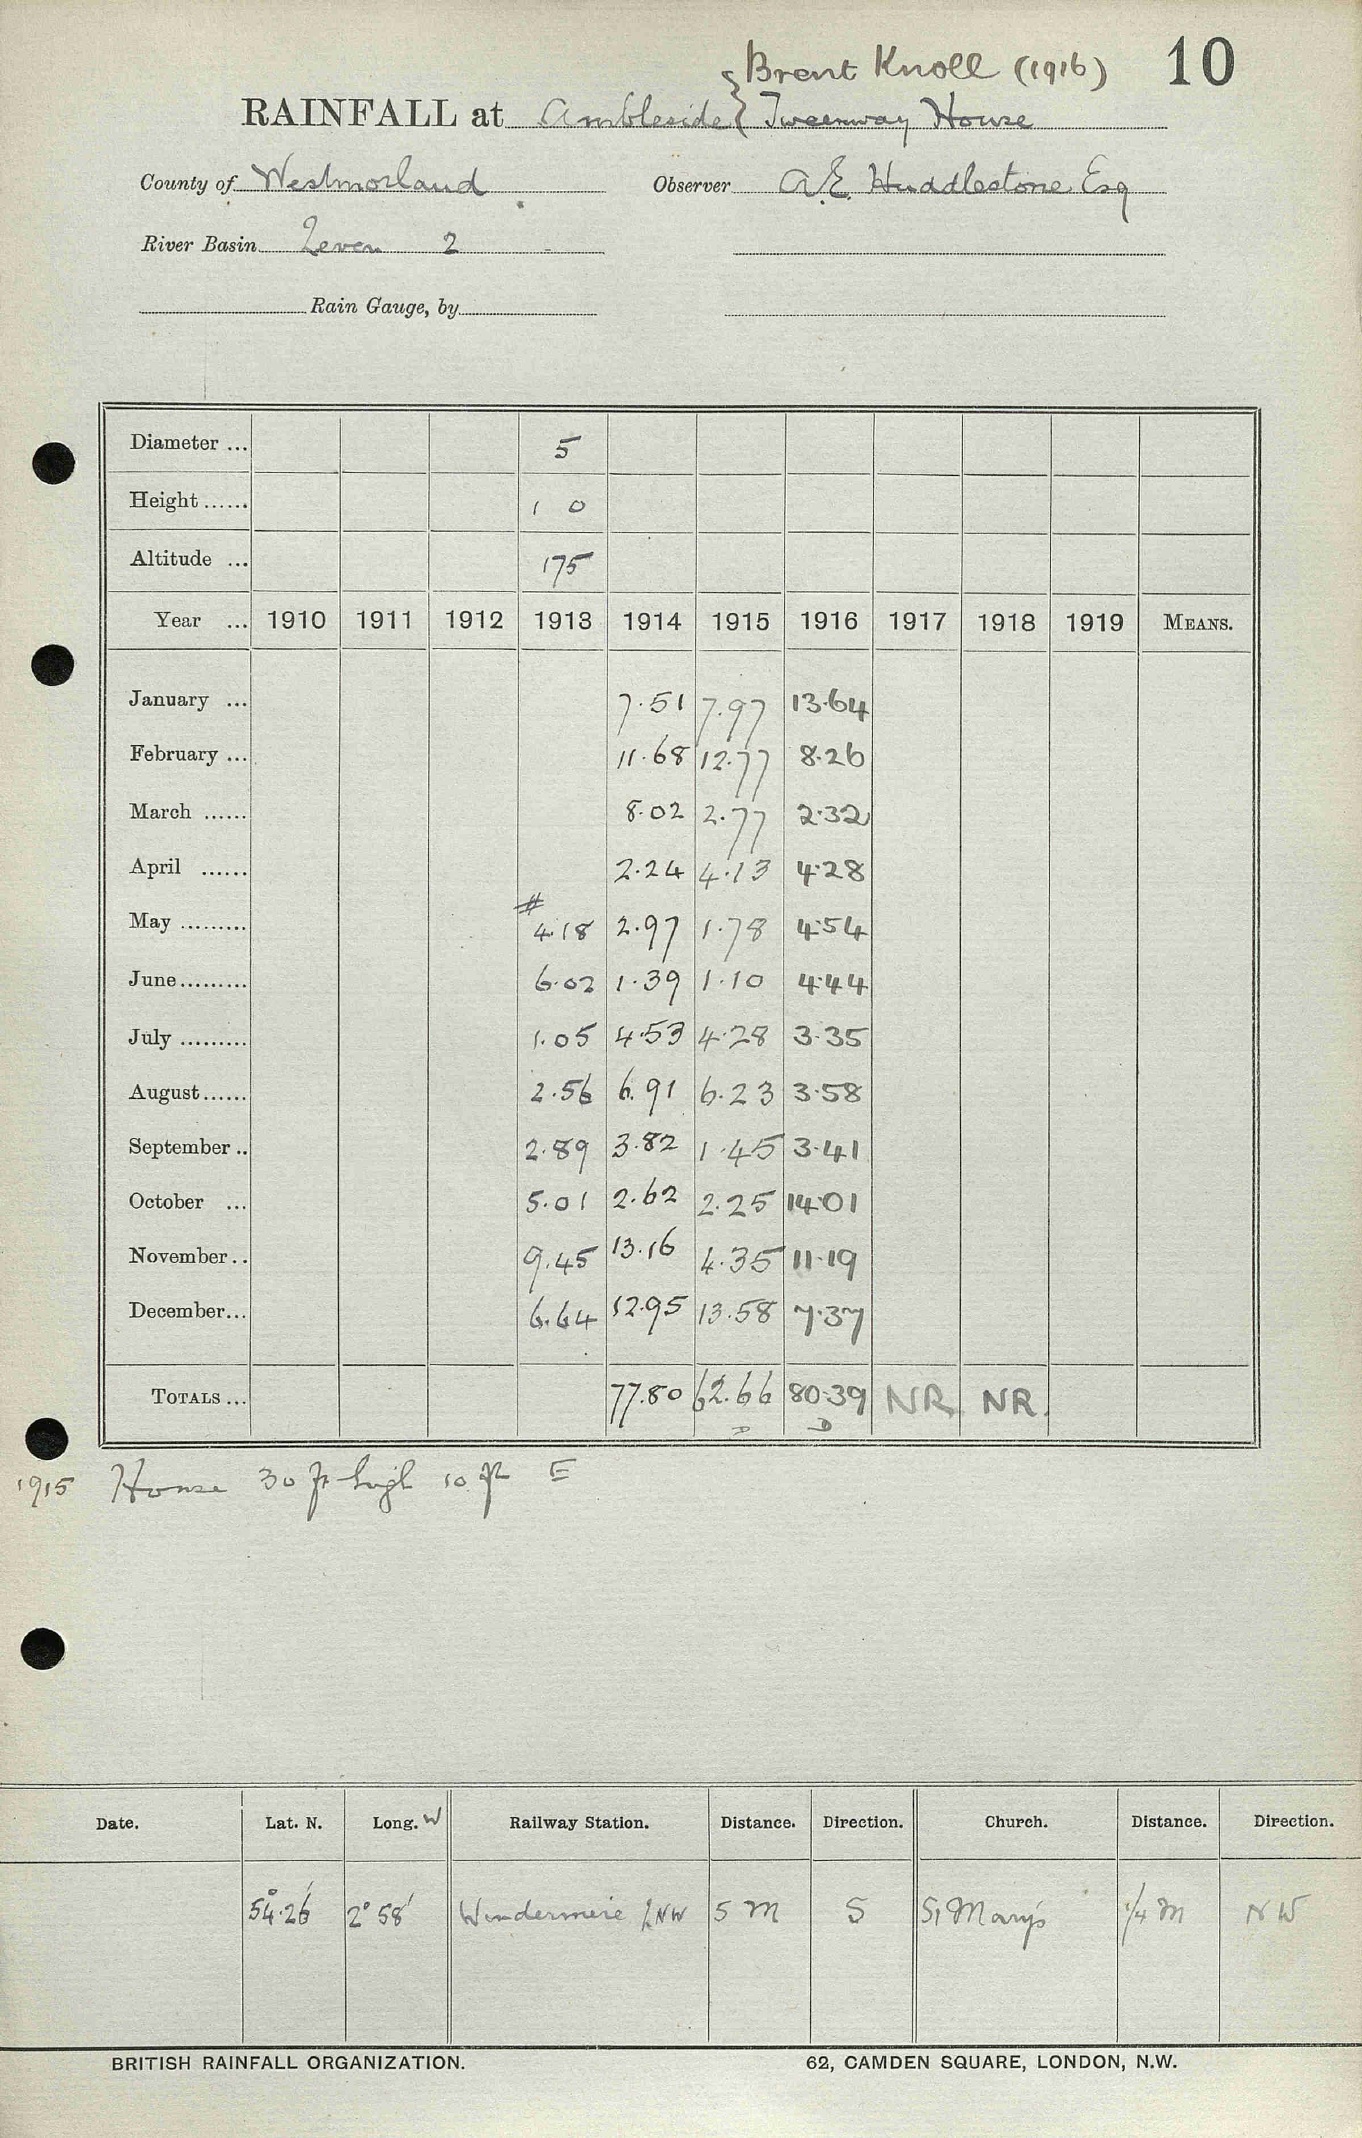 Brent Knoll (1916) 10
RAINFALL at Ambleside { Tweenway House
County of Westmorland Observer A.E. Huddlestone Esq
River Basin Leven 2
Rain Gauge, by
Diameter ... 5
Height ...... 1 0
Altitude ... 175
Year ... 1910 1911 1912 1913 1914 1915 1916 1917 1918 1919 MEANS.
January ... 7.51 7.97 13.64
February ... 11.68 12.77 8.26
March ...... 8.02 2.77 2.32
April ...... 2.24 4.13 4.28
May ......... # 4.18 2.97 1.78 4.54
June......... 6.02 1.39 1.10 4.44
July ......... 1.05 4.53 4.28 3.35
August...... 2.56 6.91 6.23 3.58
September .. 2.89 3.82 1.45 3.41
October ... 5.01 2.62 2.25 14.01
November .. 9.45 13.16 4.35 11.19
December... 6.64 12.95 13.58 7.37
TOTALS ... 77.80 62.66 80.39 NR NR.
D D
1915 House 30 ft high 10 ft E
Date. Lat. N. Long. W Railway Station. Distance. Direction. Church. Distance. Direction.
54°.26' 2° 58' Windermere LNW 5 M S St Mary's 1/4 M NW
BRITISH RAINFALL ORGANIZATION. 62, CAMDEN SQUARE, LONDON, N.W.